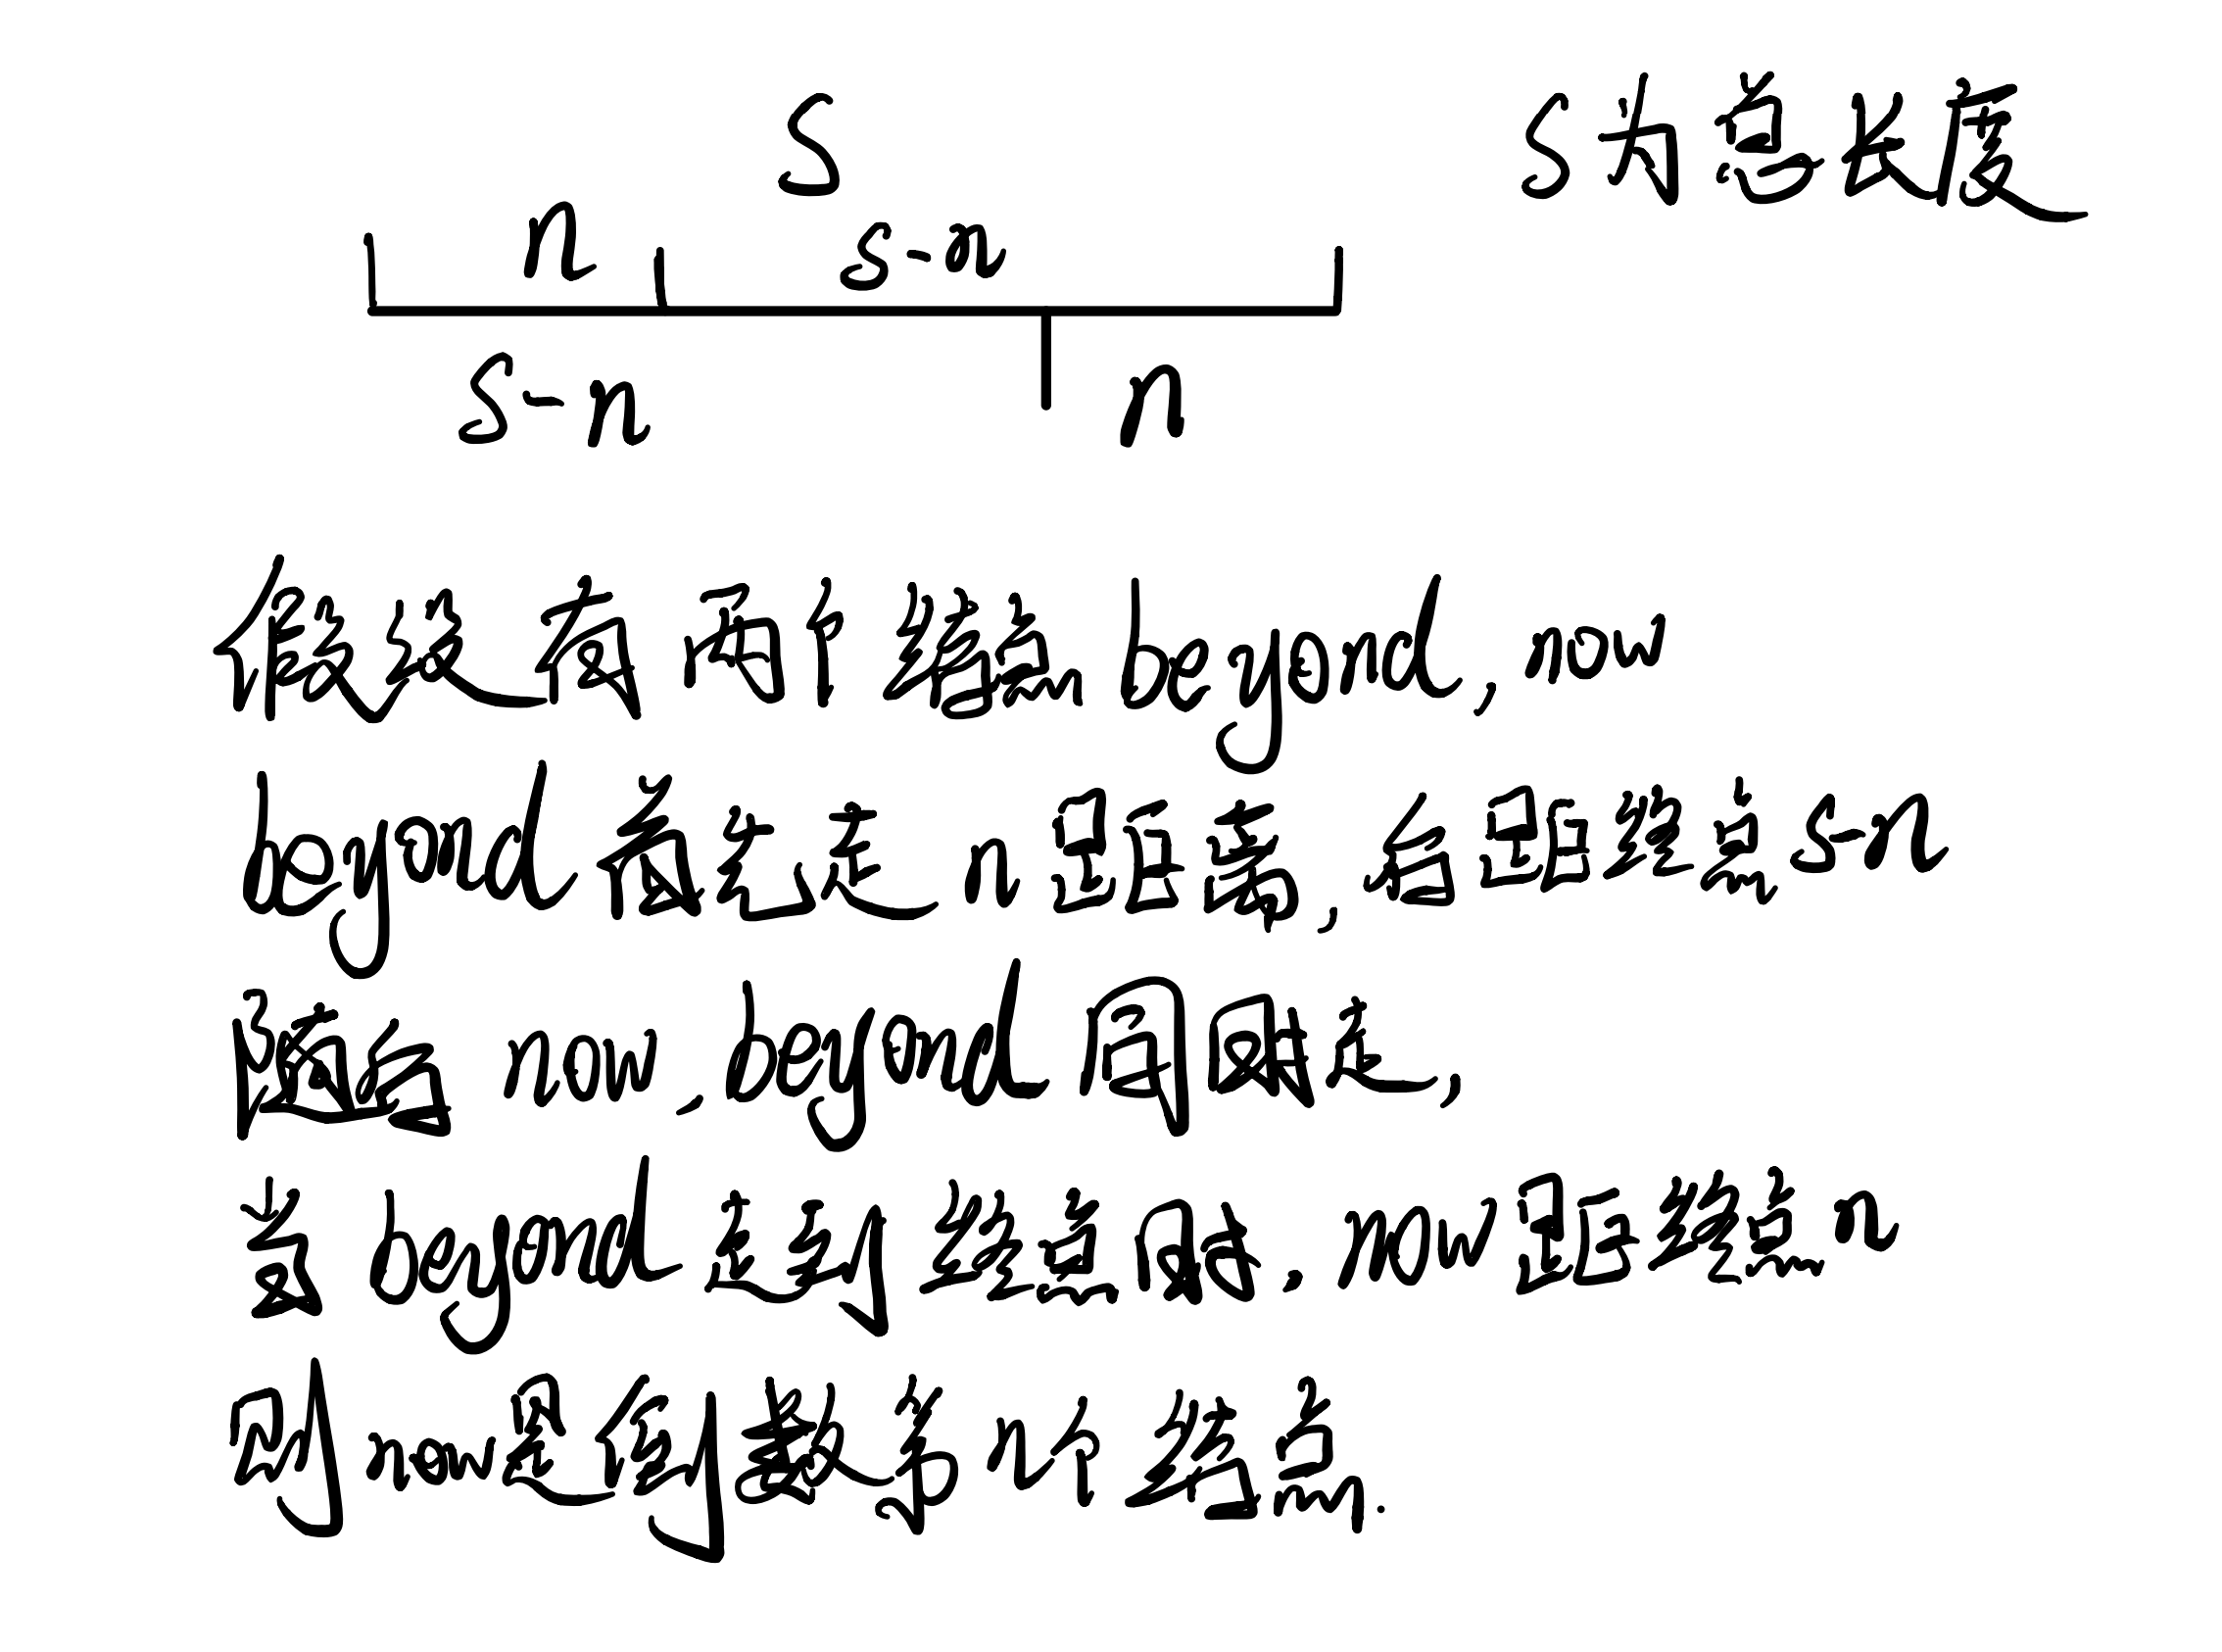 S
S为总长度
n
s-n
s-n
n
假设有两个指针 beyond, now
beyond 首先走 n 距离, 后距终点 s-n
随后 now, beyond 同时走,
当 beyond 走到终点时. now 距终点 n
则 now 是倒数第 n 个结点.